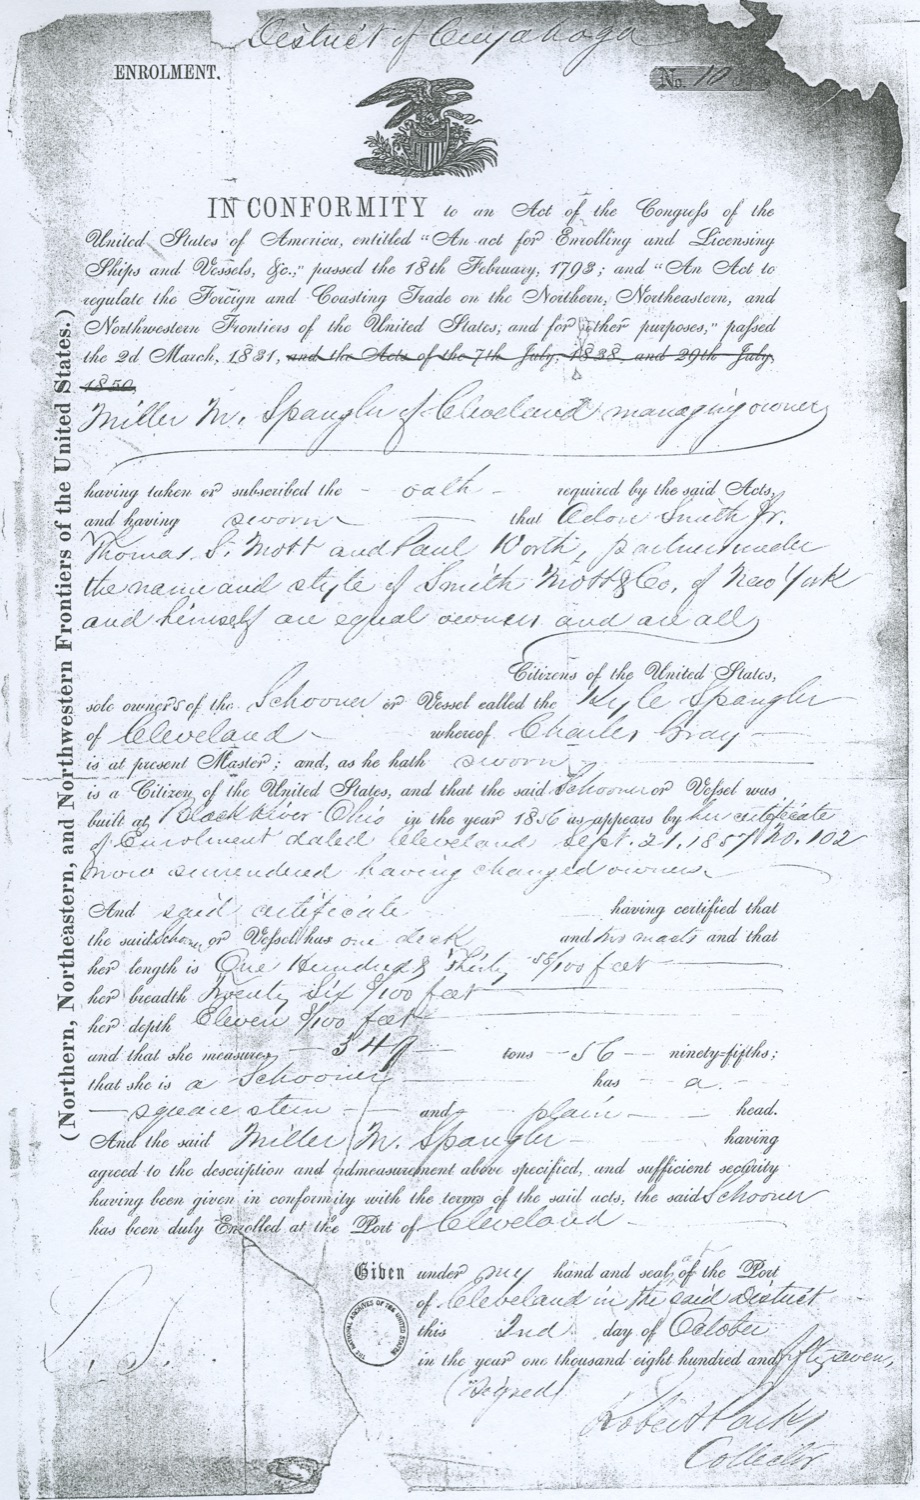 District of Cuyahoga
ENROLMENT.
No. 10
IN CONFORMITY to an Act of the Congress of the
United States of America, entitled "An act for Enrolling and Licensing
Ships and Vessels, &c.," passed the 18th February, 1793; and "An Act to
regulate the Foreign and Coasting Trade on the Northern, Northeastern, and
Northwestern Frontiers of the United States, and for other purposes," passed
the 2d March, 1831, and the Acts of the 7th July, 1838, and 29th July,
1850,
Miller M. Spangler of Cleveland managing owner
having taken or subscribed the - oath - required by the said Acts,
and having sworn that Smith Jr.
Thomas S. Mott and Paul Worth, partners under
the name and style of Smith Mott & Co. of New York
and himself are equal owners and are all
Citizens of the United States,
sole owners of the Schooner or Vessel called the Kyle Spangler
of Cleveland whereof Charles Gray
is at present Master; and, as he hath sworn
is a Citizen of the United States, and that the said Schooner or Vessel was
built at Black River Ohio in the year 1856 as appears by her certificate
of Enrolment dated Cleveland Sept. 21. 1857 No. 102
now surrendered having changed owners
And said certificate having certified that
the said Schooner or Vessel has one deck and two masts and that
her length is One Hundred & Thirty 58/100 feet
her breadth Twenty Six 8/100 feet
her depth Eleven 8/100 feet
and that she measures 349 tons 56 ninety-fifths;
that she is a Schooner has a
square stern and plain head.
And the said Miller M. Spangler having
agreed to the description and admeasurement above specified, and sufficient security
having been given in conformity with the terms of the said acts, the said Schooner
has been duly Enrolled at the Port of Cleveland
Given under my hand and seal of the Port
of Cleveland in the said District
this 2nd day of October
in the year one thousand eight hundred and fifty seven,
(Signed)
Robert Parks
Collector
L. S.
THE NATIONAL ARCHIVES OF THE UNITED STATES
(Northern, Northeastern, and Northwestern Frontiers of the United States.)